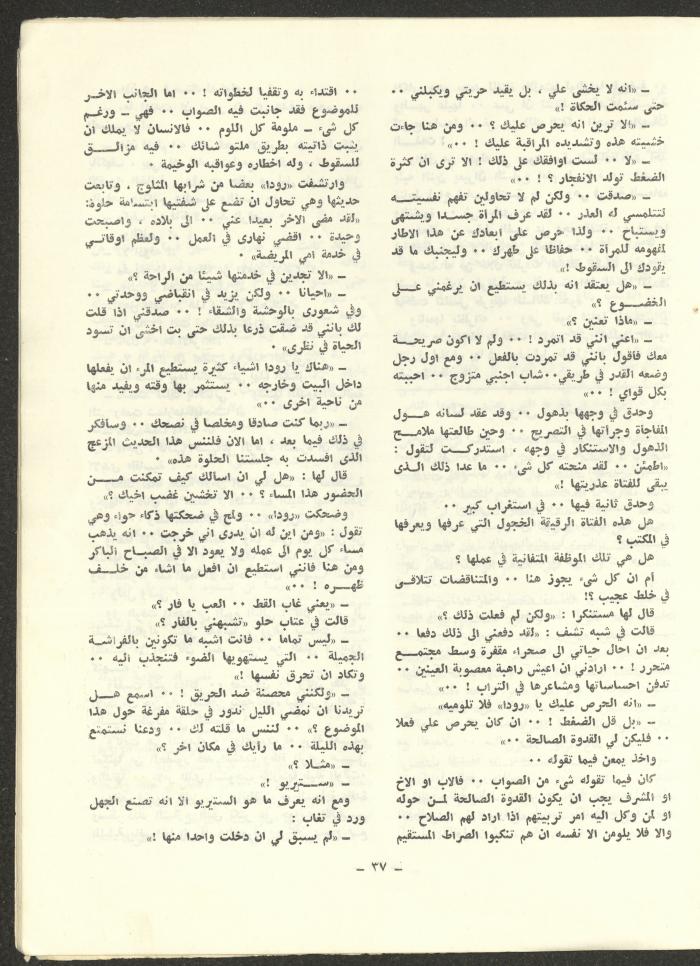 ـ «انه لا يخشى علي ، بل يقيد حريتي ويكبلني ٠٠
حتى سئمت الحكاة !»
ـ «الا ترين انه يحرص عليك ؟ ٠٠ ومن هنا جاءت
خشيته هذه وتشديده المراقبة عليك ! ٠٠»
ـ «لا ٠٠ لست اوافقك على ذلك ! الا ترى ان كثرة
الضغط تولد الانفجار ؟ ! ٠٠»
ـ «صدقت ٠٠ ولكن لم لا تحاولين تفهم نفسيتــه
لتتلمسي له العذر ٠٠ لقد عرف المرأة جسدا ويشتهى
ويستباح ٠٠ ولذا حرص على ابعادك عن هذا الاطار
لمفهومه للمرأة ٠٠ حفاظا على طهرك ٠٠ وليجنبك ما قد
يقودك الى السقوط !»
ـ «هل يعتقد انه بذلك يستطيع ان يرغمني علــى
الخضــوع ؟»
ـ «ماذا تعنين ؟»
ـ «اعني انني قد اتمرد ! ٠٠ ولم لا اكون صريحــة
معك فاقول بانني قد تمردت بالفعل ٠٠ ومع اول رجل
وضعه القدر في طريقي٠٠شاب اجنبي متزوج ٠٠ احببته
بكل قواي ! ٠٠»
وحدق في وجهها بذهول ٠٠ وقد عقد لسانه هــول
المفاجأة وجرأتها في التصريح ٠٠ وحين طالعتها ملامــح
الذهول والاستنكار في وجهه ، استدركــت لتقول :
«اطمئن ٠٠ لقد منحته كل شىء ٠٠ ما عدا ذلك الــذى
يبقى للفتاة عذريتها !»
وحدق ثانية فيها ٠٠ في استغراب كبير ٠٠
هل هذه الفتاة الرقيقة الخجول التي عرفها ويعرفها
في المكتب ؟
هل هي تلك الموظفة المتفانية في عملها ؟
أم ان كل شىء يجوز هنا ٠٠ والمتناقضات تتلاقــى
في خلط عجيب ؟!
قال لها مستنكرا : «ولكن لم فعلت ذلك ؟»
قالت في شبه تشف : «لقد دفعني الى ذلك دفعا ٠٠
بعد ان احال حياتي الى صحراء مقفرة وسط مجتمــع
متحرر ! ٠٠ ارادني ان اعيش راهبة معصوبة العينين ٠٠
تدفن احساساتها ومشاعرها في التراب ! ٠٠»
ـ «انه الحرص عليك يا «رودا» فلا تلوميه»
ـ «بل قل الضغط ! ٠٠ ان كان يحرص علي فعلا
٠٠ فليكن لي القدوة الصالحة ٠٠»
واخذ يمعن فيما تقوله ٠٠
كان فيما تقوله شىء من الصواب ٠٠ فالاب او الاخ
او المشرف يجب ان يكون القدوة الصالحة لمــن حوله
او لمن وكل اليه امر تربيتهم اذا اراد لهم الصلاح ٠٠
والا فلا يلومن الا نفسه ان هم تنكبوا الصراط المستقيم
٠٠ اقتداء به وتقفيا لخطواته ! ٠٠ اما الجانب الاخــر
للموضوع فقد جانبت فيه الصواب ٠٠ فهي ـ ورغــم
كل شىء ـ ملومة كل اللوم ٠٠ فالانسان لا يملك ان
يثبت ذاتيته بطريق ملتو شائك ٠٠ فيه مزالــق
للسقوط ، وله اخطاره وعواقبه الوخيمة ٠
وارتشفت «رودا» بعضا من شرابها المثلوج ، وتابعت
حديثها وهي تحاول ان تضع على شفتيها ابتسامة حلوة:
«لقد مضى الاخر بعيدا عني ٠٠ الى بلاده ، واصبحت
وحيدة ٠٠ اقضي نهارى في العمل ٠٠ ولعظم اوقاتــي
في خدمة امي المريضة» ٠
ـ «الا تجدين في خدمتها شيئا من الراحة ؟»
ـ «احيانا ٠٠ ولكن يزيد في انقباضي ووحدتي ٠٠
وفي شعورى بالوحشة والشقاء ! ٠٠ صدقني اذا قلت
لك بانني قد ضقت ذرعا بذلك حتى بت اخشى ان تسود
الحياة في نظرى» ٠
ـ «هناك يا رودا اشياء كثيرة يستطيع المرء ان يفعلها
داخل البيت وخارجه ٠٠ يستثمر بها وقته ويفيد منها
من ناحية اخرى ٠٠»
ـ «ربما كنت صادقا ومخلصا في نصحك ٠٠ وسأفكر
في ذلك فيما بعد ، اما الان فلننس هذا الحديث المزعج
الذى افسدت به جلستنا الحلوة هذه» ٠
قال لها : «هل لي ان اسالك كيف تمكنت مــن
الحضور هذا المساء ؟ ٠٠ الا تخشين غضب اخيك ؟»
وضحكت «رودا» ٠٠ ولمح في ضحكتها ذكاء حواء وهي
تقول : «ومن اين له ان يدرى اني خرجت ٠٠ انه يذهب
مساء كل يوم الى عمله ولا يعود الا في الصبــاح الباكر
ومن هنا فانني استطيع ان افعل ما اشاء من خلــف
ظهــره ! ٠٠»
ـ «يعني غاب القط ٠٠ العب يا فار ؟»
قالت في عتاب حلو «تشبهني بالفأر ؟»
ـ «ليس تماما ٠٠ فانت اشبه ما تكونين بالفراشــة
الجميلة ٠٠ التي يستهويها الضوء فتنجذب اليه ٠٠
وتكاد ان تحرق نفسها !»
ـ «ولكنني محصنة ضد الحريق ! ٠٠ اسمع هــل
تريدنا ان نمضي الليل ندور في حلقة مفرغة حول هذا
الموضوع ؟» ٠٠ لننس ما قلته لك ٠٠ ودعنا نستمتع
بهذه الليلة ٠٠ ما رأيك في مكان اخر ؟»
ـ «مثــلا ؟»
ـ «ســتيريو !»
ومع انه يعرف ما هو الستيريو الا انه تصنع الجهل
ورد في تغاب :
ـ «لم يسبق لي ان دخلت واحدا منها !»
ـ ٣٧ ـ